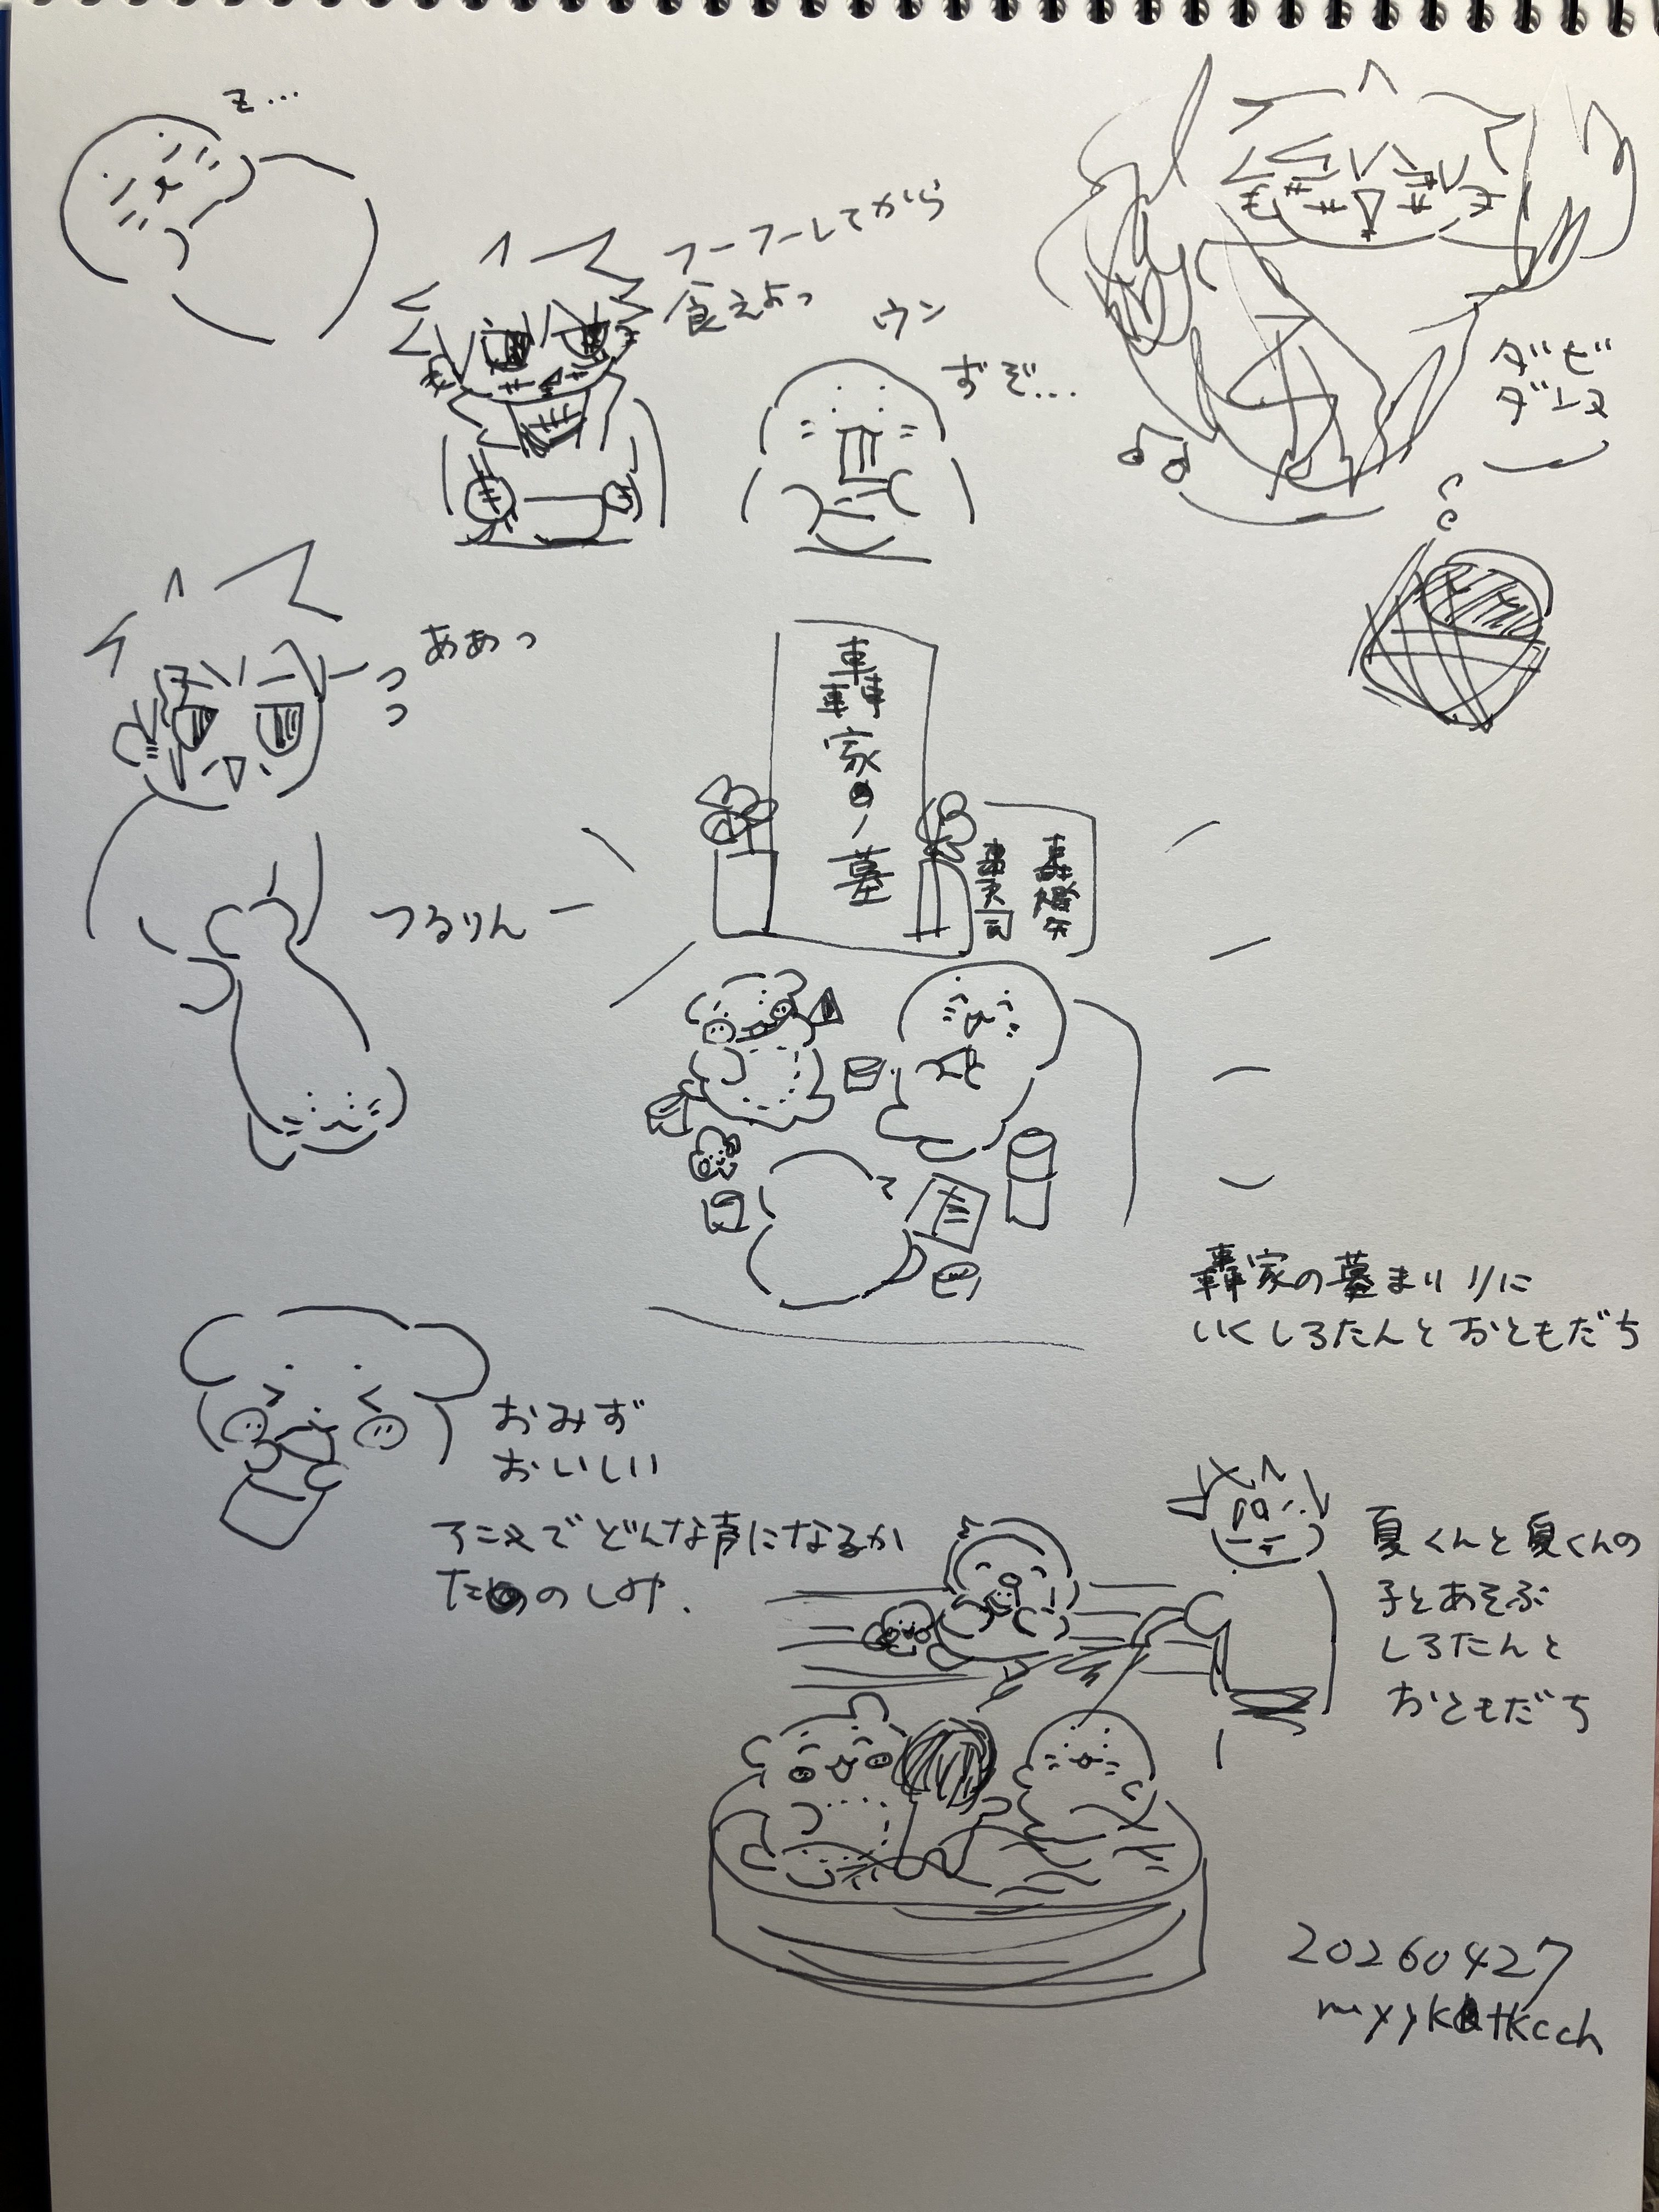 z…
フーフーしてから
食えよっ
ウン
ずぞ…
ダビ
ダンス
ああっ
轟家の墓
轟燈矢
つるりん
轟家の墓まいりに
いくしろたんとおともだち
おみず
おいしい
アニメでどんな声になるか
たのしみ.
夏くんと夏くんの
子とあそぶ
しろたんと
おともだち
20260427